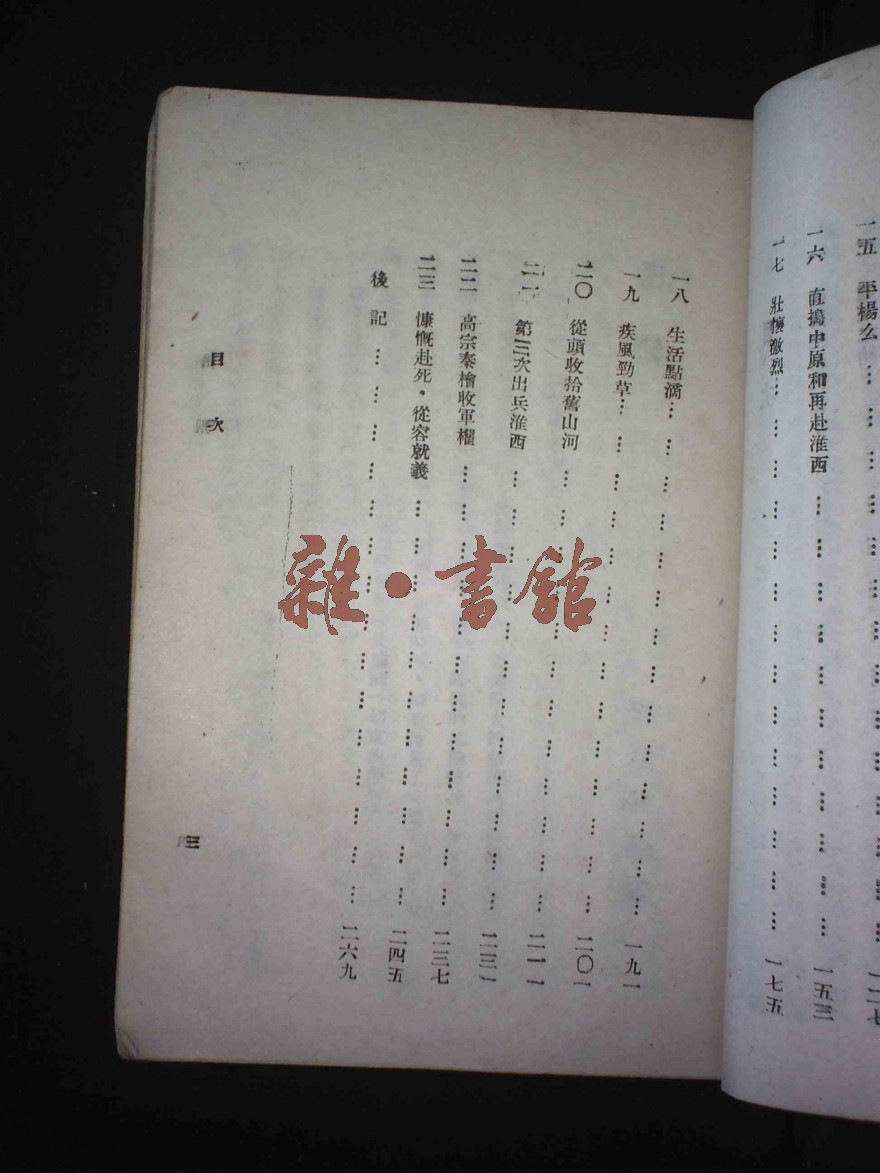 一五 平楊么……………………一二七
一六 直搗中原和再赴淮西……………………一五三
一七 壯懷激烈……………………一七五
一八 生活點滴……………………一九一
一九 疾風勁草……………………二〇一
二〇 從頭收拾舊山河……………………二一一
二一 第三次出兵淮西……………………二三一
二二 高宗秦檜收軍權……………………二三七
二三 慷慨赴死・從容就義……………………二四五
後記……………………二六九
目次
三
雜・書館